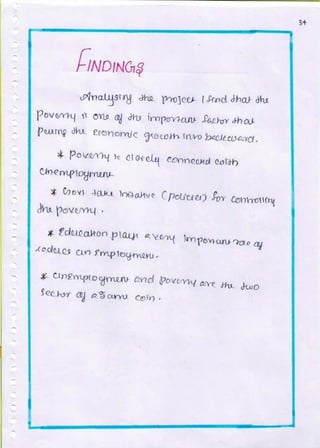 34
FINDINGS
Analysing the project I find that the
Poverty is one of the important Sector that
the Economic growth into backward.
* Poverty is closely connected with
unemployment
* Govt take initiative (policies) for controlling
the poverty.
* Education plays a very important role of
reduces unemployment.
* unemployment and poverty are the two
Sector of a same coin.